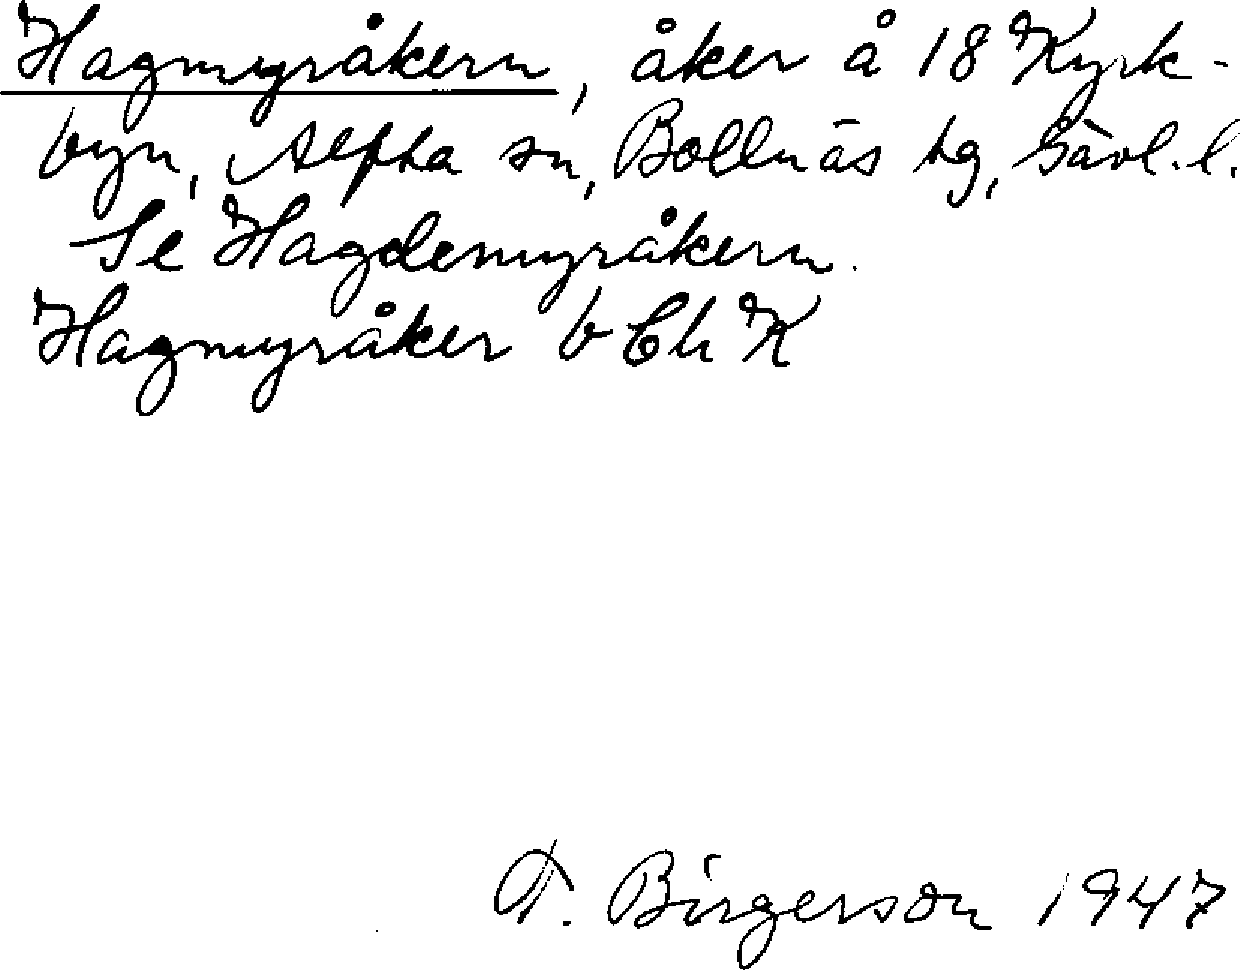 Hagmyråkern, åker å 18 Kyrk-
byn, Alfta sn, Bollnäs tg, Gävl.l.
Se Hagdemyråkern.
Hagmyråker b Ch K
T. Birgerson 1947